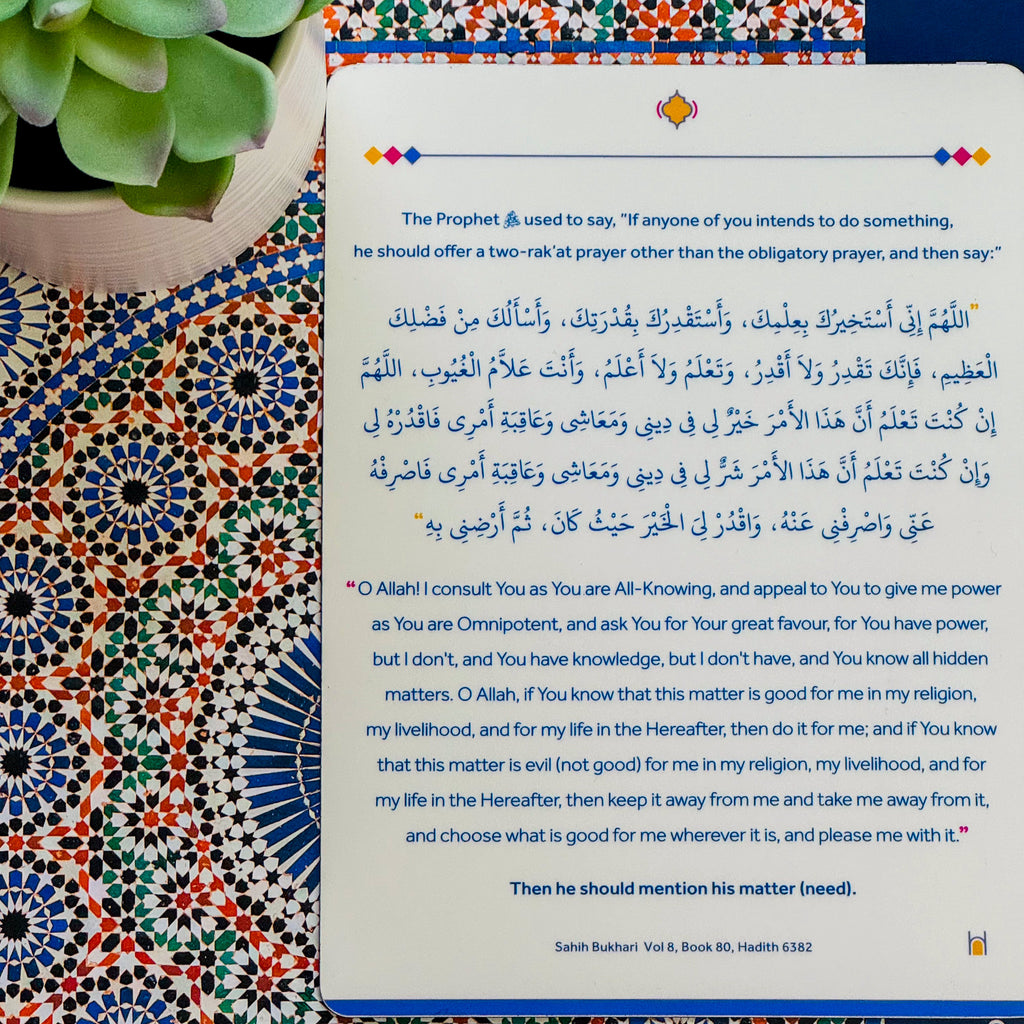 The Prophet ﷺ used to say, "If anyone of you intends to do something,
he should offer a two-rak'at prayer other than the obligatory prayer, and then say:"
”اللَّهُمَّ إِنِّي أَسْتَخِيرُكَ بِعِلْمِكَ، وَأَسْتَقْدِرُكَ بِقُدْرَتِكَ، وَأَسْأَلُكَ مِنْ فَضْلِكَ
الْعَظِيمِ، فَإِنَّكَ تَقْدِرُ وَلاَ أَقْدِرُ، وَتَعْلَمُ وَلاَ أَعْلَمُ، وَأَنْتَ عَلاَّمُ الْغُيُوبِ، اللَّهُمَّ
إِنْ كُنْتَ تَعْلَمُ أَنَّ هَذَا الأَمْرَ خَيْرٌ لِي فِي دِينِي وَمَعَاشِى وَعَاقِبَةِ أَمْرِى فَاقْدُرْهُ لِى
وَإِنْ كُنْتَ تَعْلَمُ أَنَّ هَذَا الأَمْرَ شَرٌّ لِي فِي دِينِي وَمَعَاشِى وَعَاقِبَةِ أَمْرِى فَاصْرِفْهُ
عَنِّي وَاصْرِفْنِى عَنْهُ، وَاقْدُرْ لِيَ الْخَيْرَ حَيْثُ كَانَ، ثُمَّ أَرْضِنِى بِهِ“
“O Allah! I consult You as You are All-Knowing, and appeal to You to give me power
as You are Omnipotent, and ask You for Your great favour, for You have power,
but I don't, and You have knowledge, but I don't have, and You know all hidden
matters. O Allah, if You know that this matter is good for me in my religion,
my livelihood, and for my life in the Hereafter, then do it for me; and if You know
that this matter is evil (not good) for me in my religion, my livelihood, and for
my life in the Hereafter, then keep it away from me and take me away from it,
and choose what is good for me wherever it is, and please me with it.”
Then he should mention his matter (need).
Sahih Bukhari Vol 8, Book 80, Hadith 6382